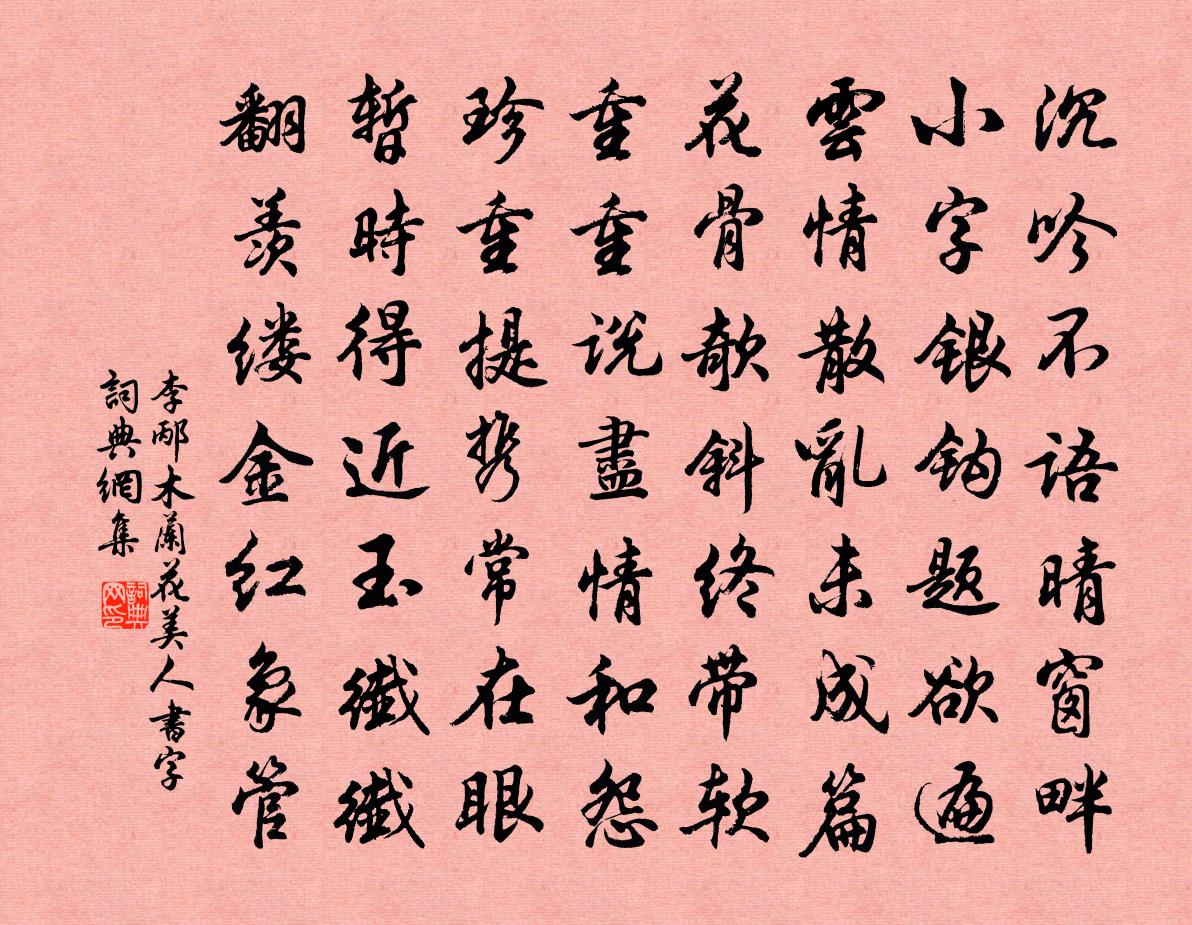 沉吟不語晴窗畔
小字銀钩题欲遍
雲情散亂未成篇
花骨欹斜终带软
重重说盡情和怨
珍重提携常在眼
暫時得近玉纖纖
翻羨缕金红象管
李邴木蘭花美人書字
詞典網集
詞典网印